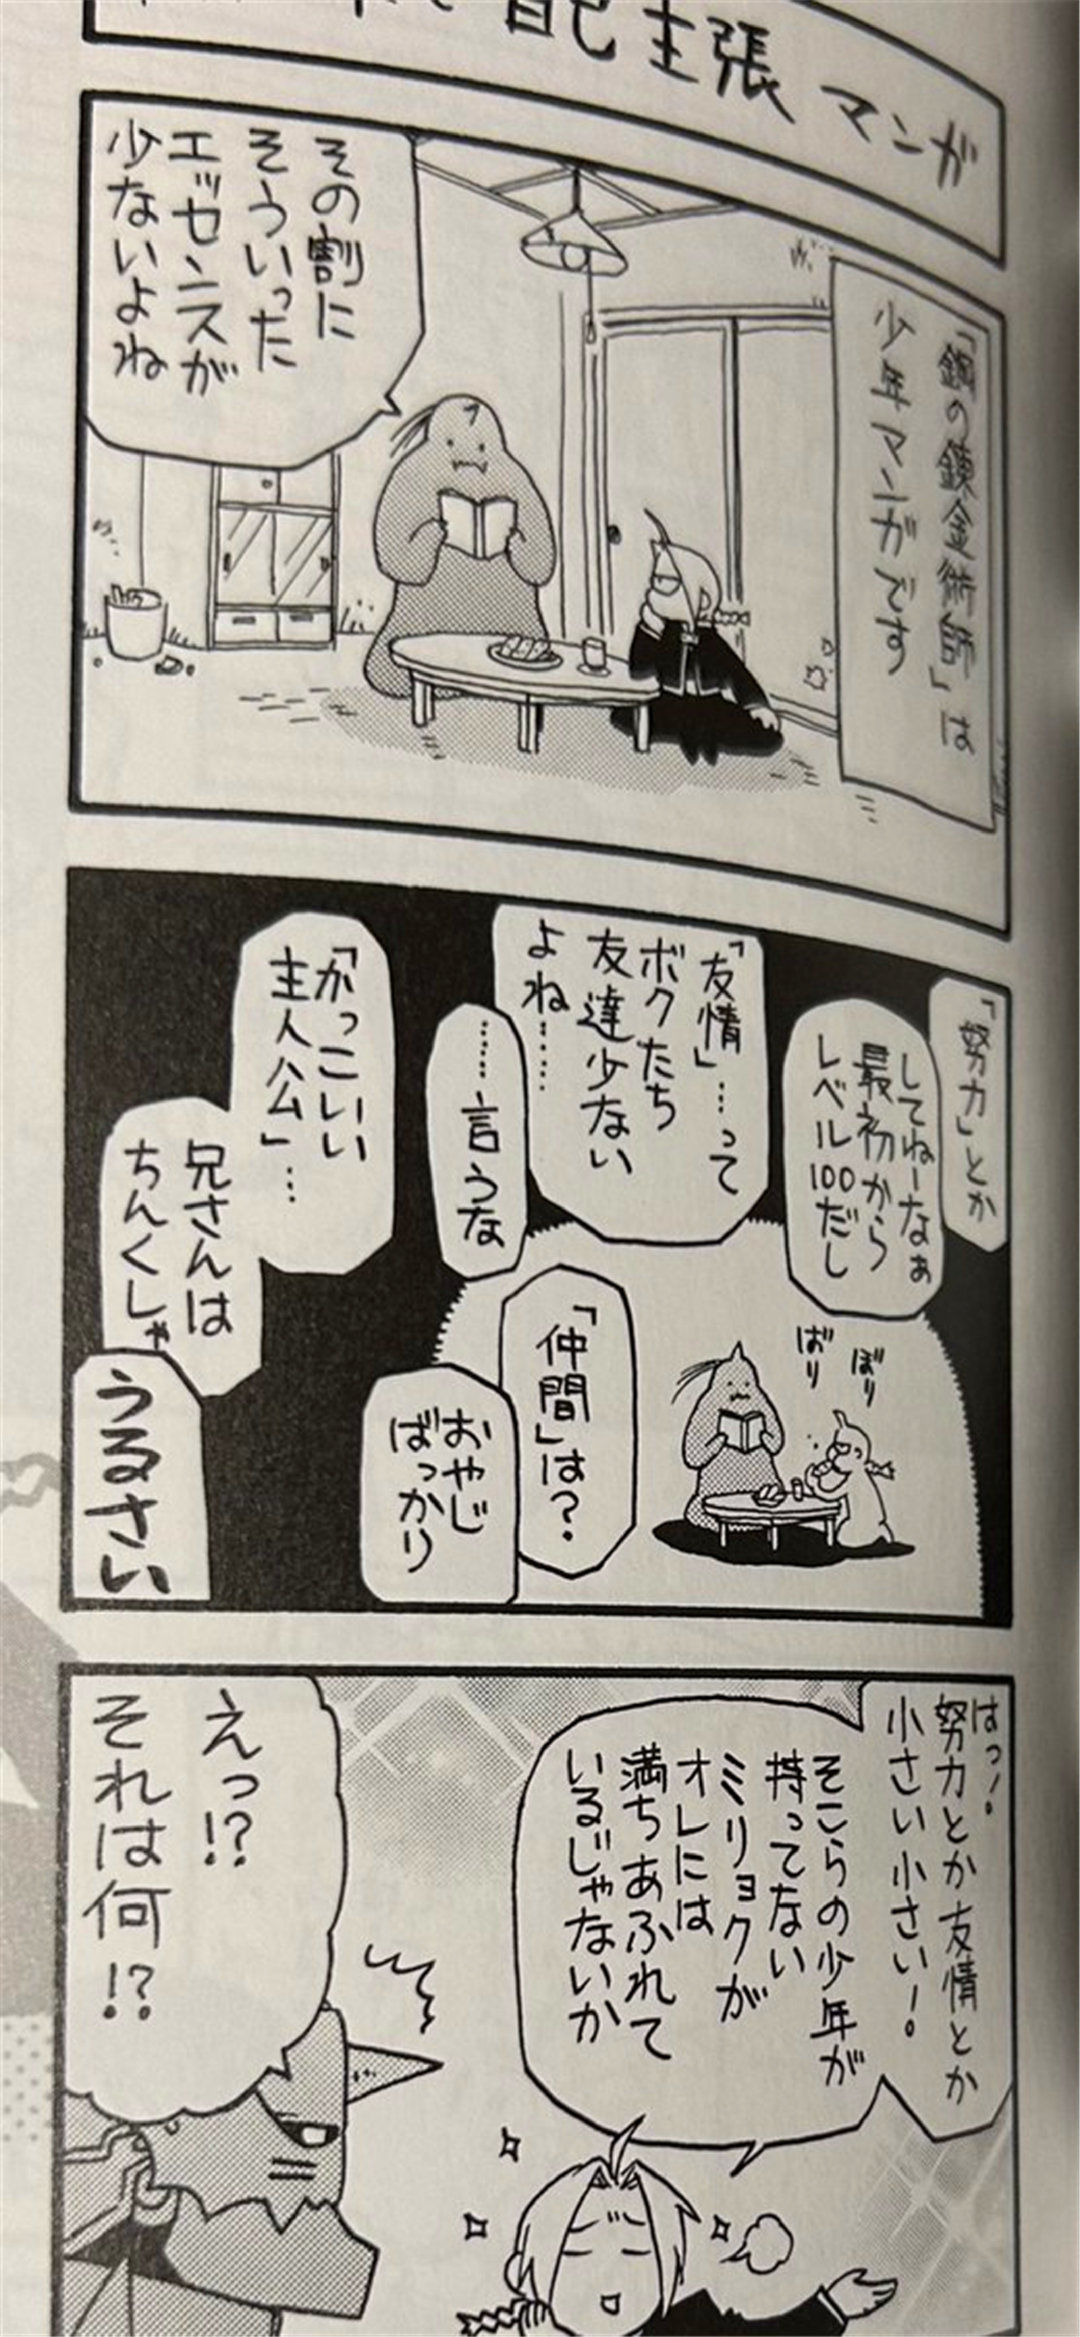 自己主張マンガ
「鋼の錬金術師」は
少年マンガです
その割に
そういった
エッセンスが
少ないよね
「努力」とか
してねーなぁ
最初から
レベル100だし
「友情」…って
ボクたち
友達少ない
よね……
……言うな
「仲間」は?
おやじ
ばっかり
「かっこいい
主人公」…
兄さんは
ちんくしゃ
うるさい
ぼり
ばり
はっ!
努力とか友情とか
小さい小さい!
そこらの少年が
持ってない
ミリョクが
オレには
満ちあふれて
いるじゃないか
えっ!?
それは何!?